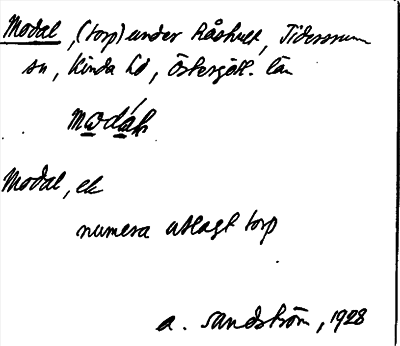 Modal, (torp) under Råshult, Tidersrums
sn, Kinda hd, Östergötl. län
Modal, ek
numera utlagt torp
A. Sandström, 1928